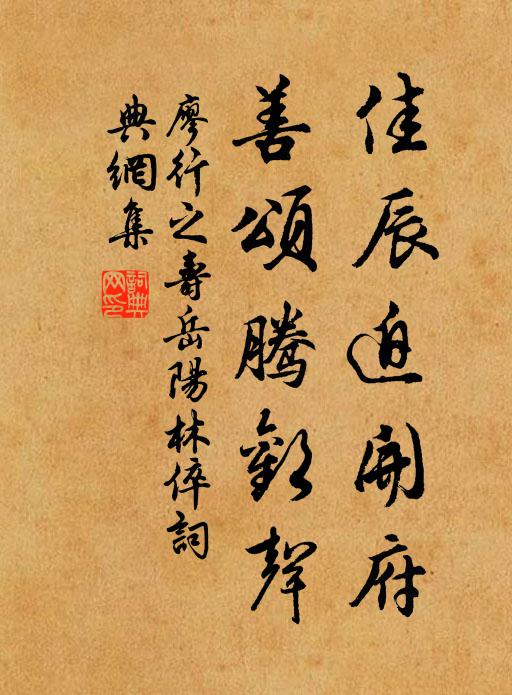 佳辰迫開府
善頌騰歡聲
廖行之壽岳陽林倅詞
典網集
詞典網印